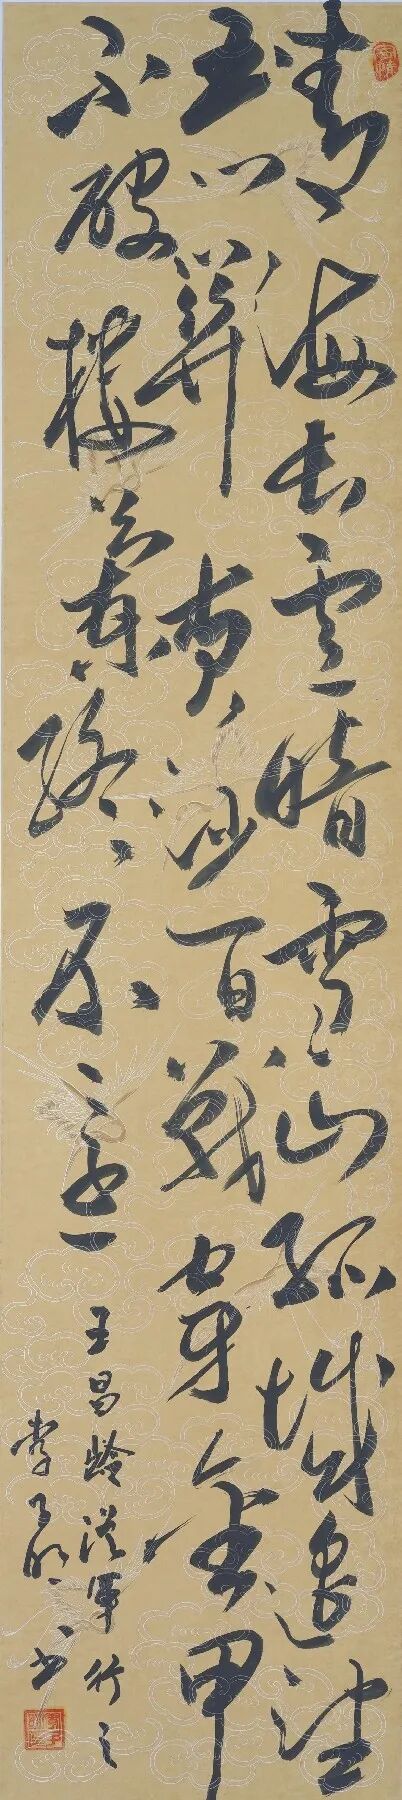 青海長雲暗雪山孤城遥望
玉門關黄沙百戰穿金甲
不破樓蘭終不還
王昌齡從軍行之
李
書